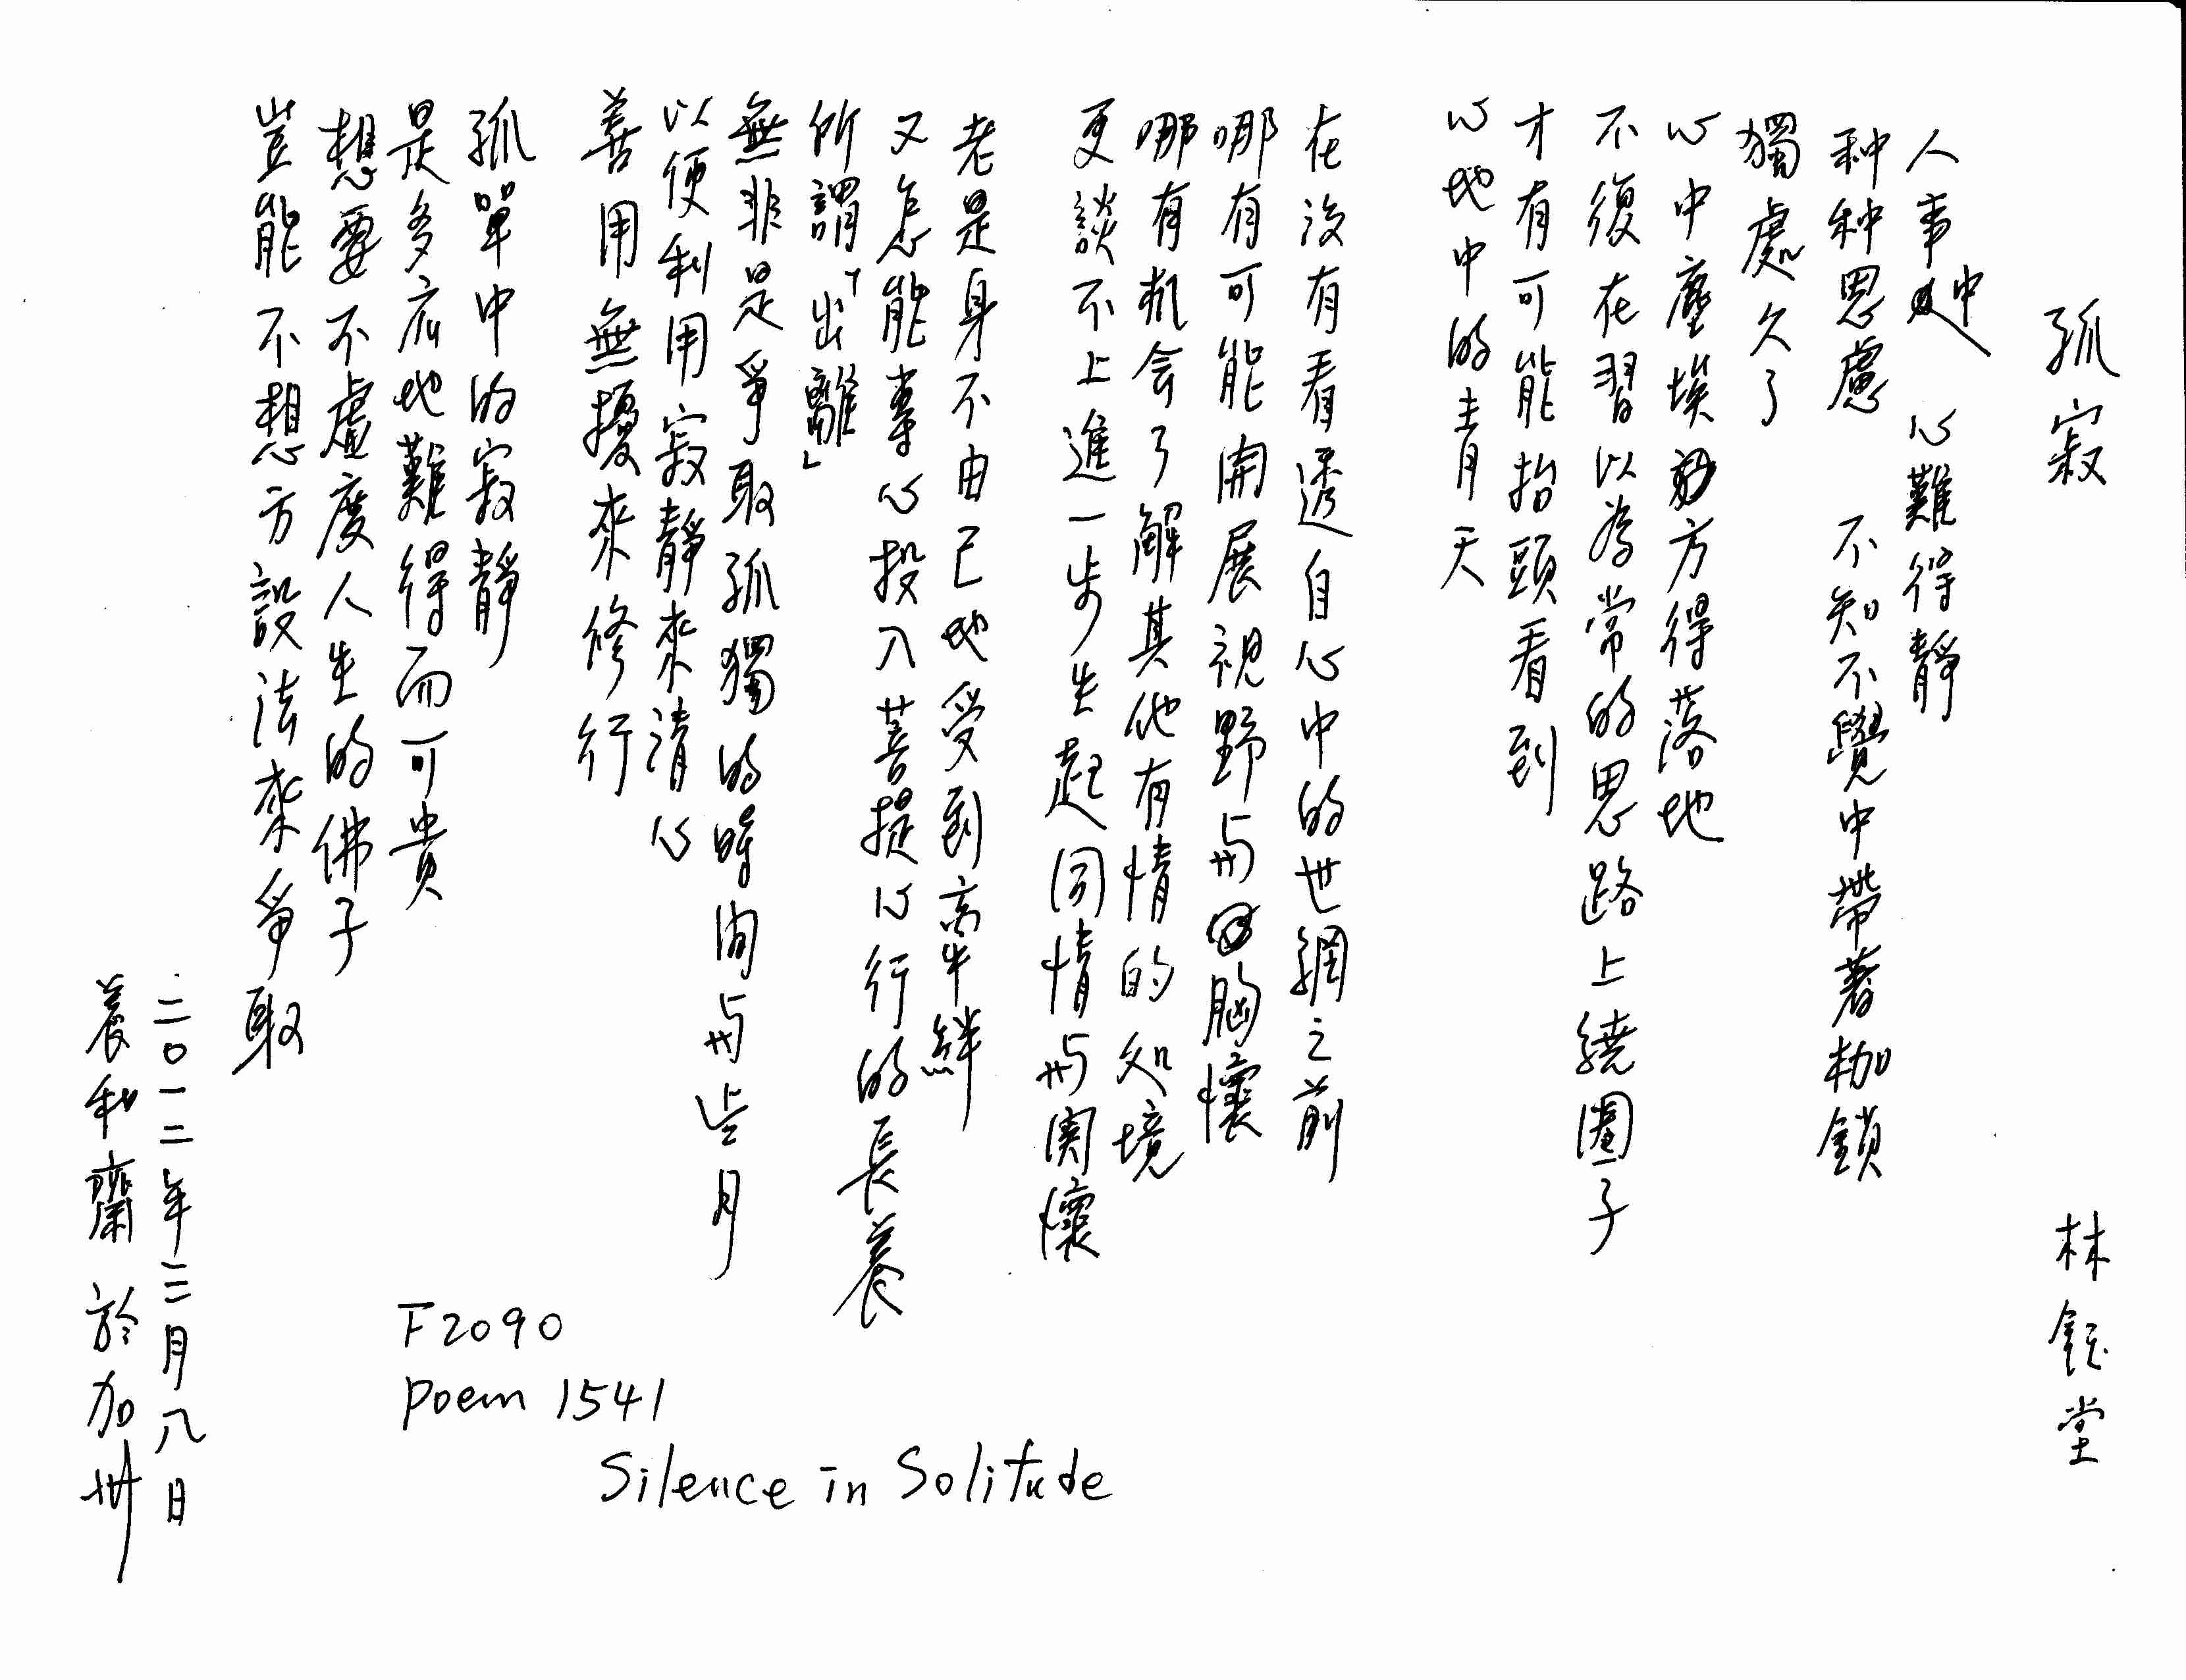 孤寂 林鈺堂
人事中 心難得靜
种种思慮 不知不覺中帶著枷鎖
獨處久了
心中塵埃方得落地
不復在習以為常的思路上繞圈子
才有可能抬頭看到
心地中的青天
在沒有看透自心中的世網之前
哪有可能開展視野与胸懷
哪有机会了解其他有情的処境
更談不上進一步生起同情与関懷
老是身不由己地受到牽絆
又怎能專心投入菩提心行的長養
所謂「出離」
無非是爭取孤獨的時间与歲月
以便利用寂靜來清心
善用無擾來修行
孤單中的寂靜
是多麼地難得而可貴
想要不虛度人生的佛子
豈能不想方設法來爭取
二〇一二年三月八日
養和齋 於加州
F2090
Poem 1541
Silence in Solitude